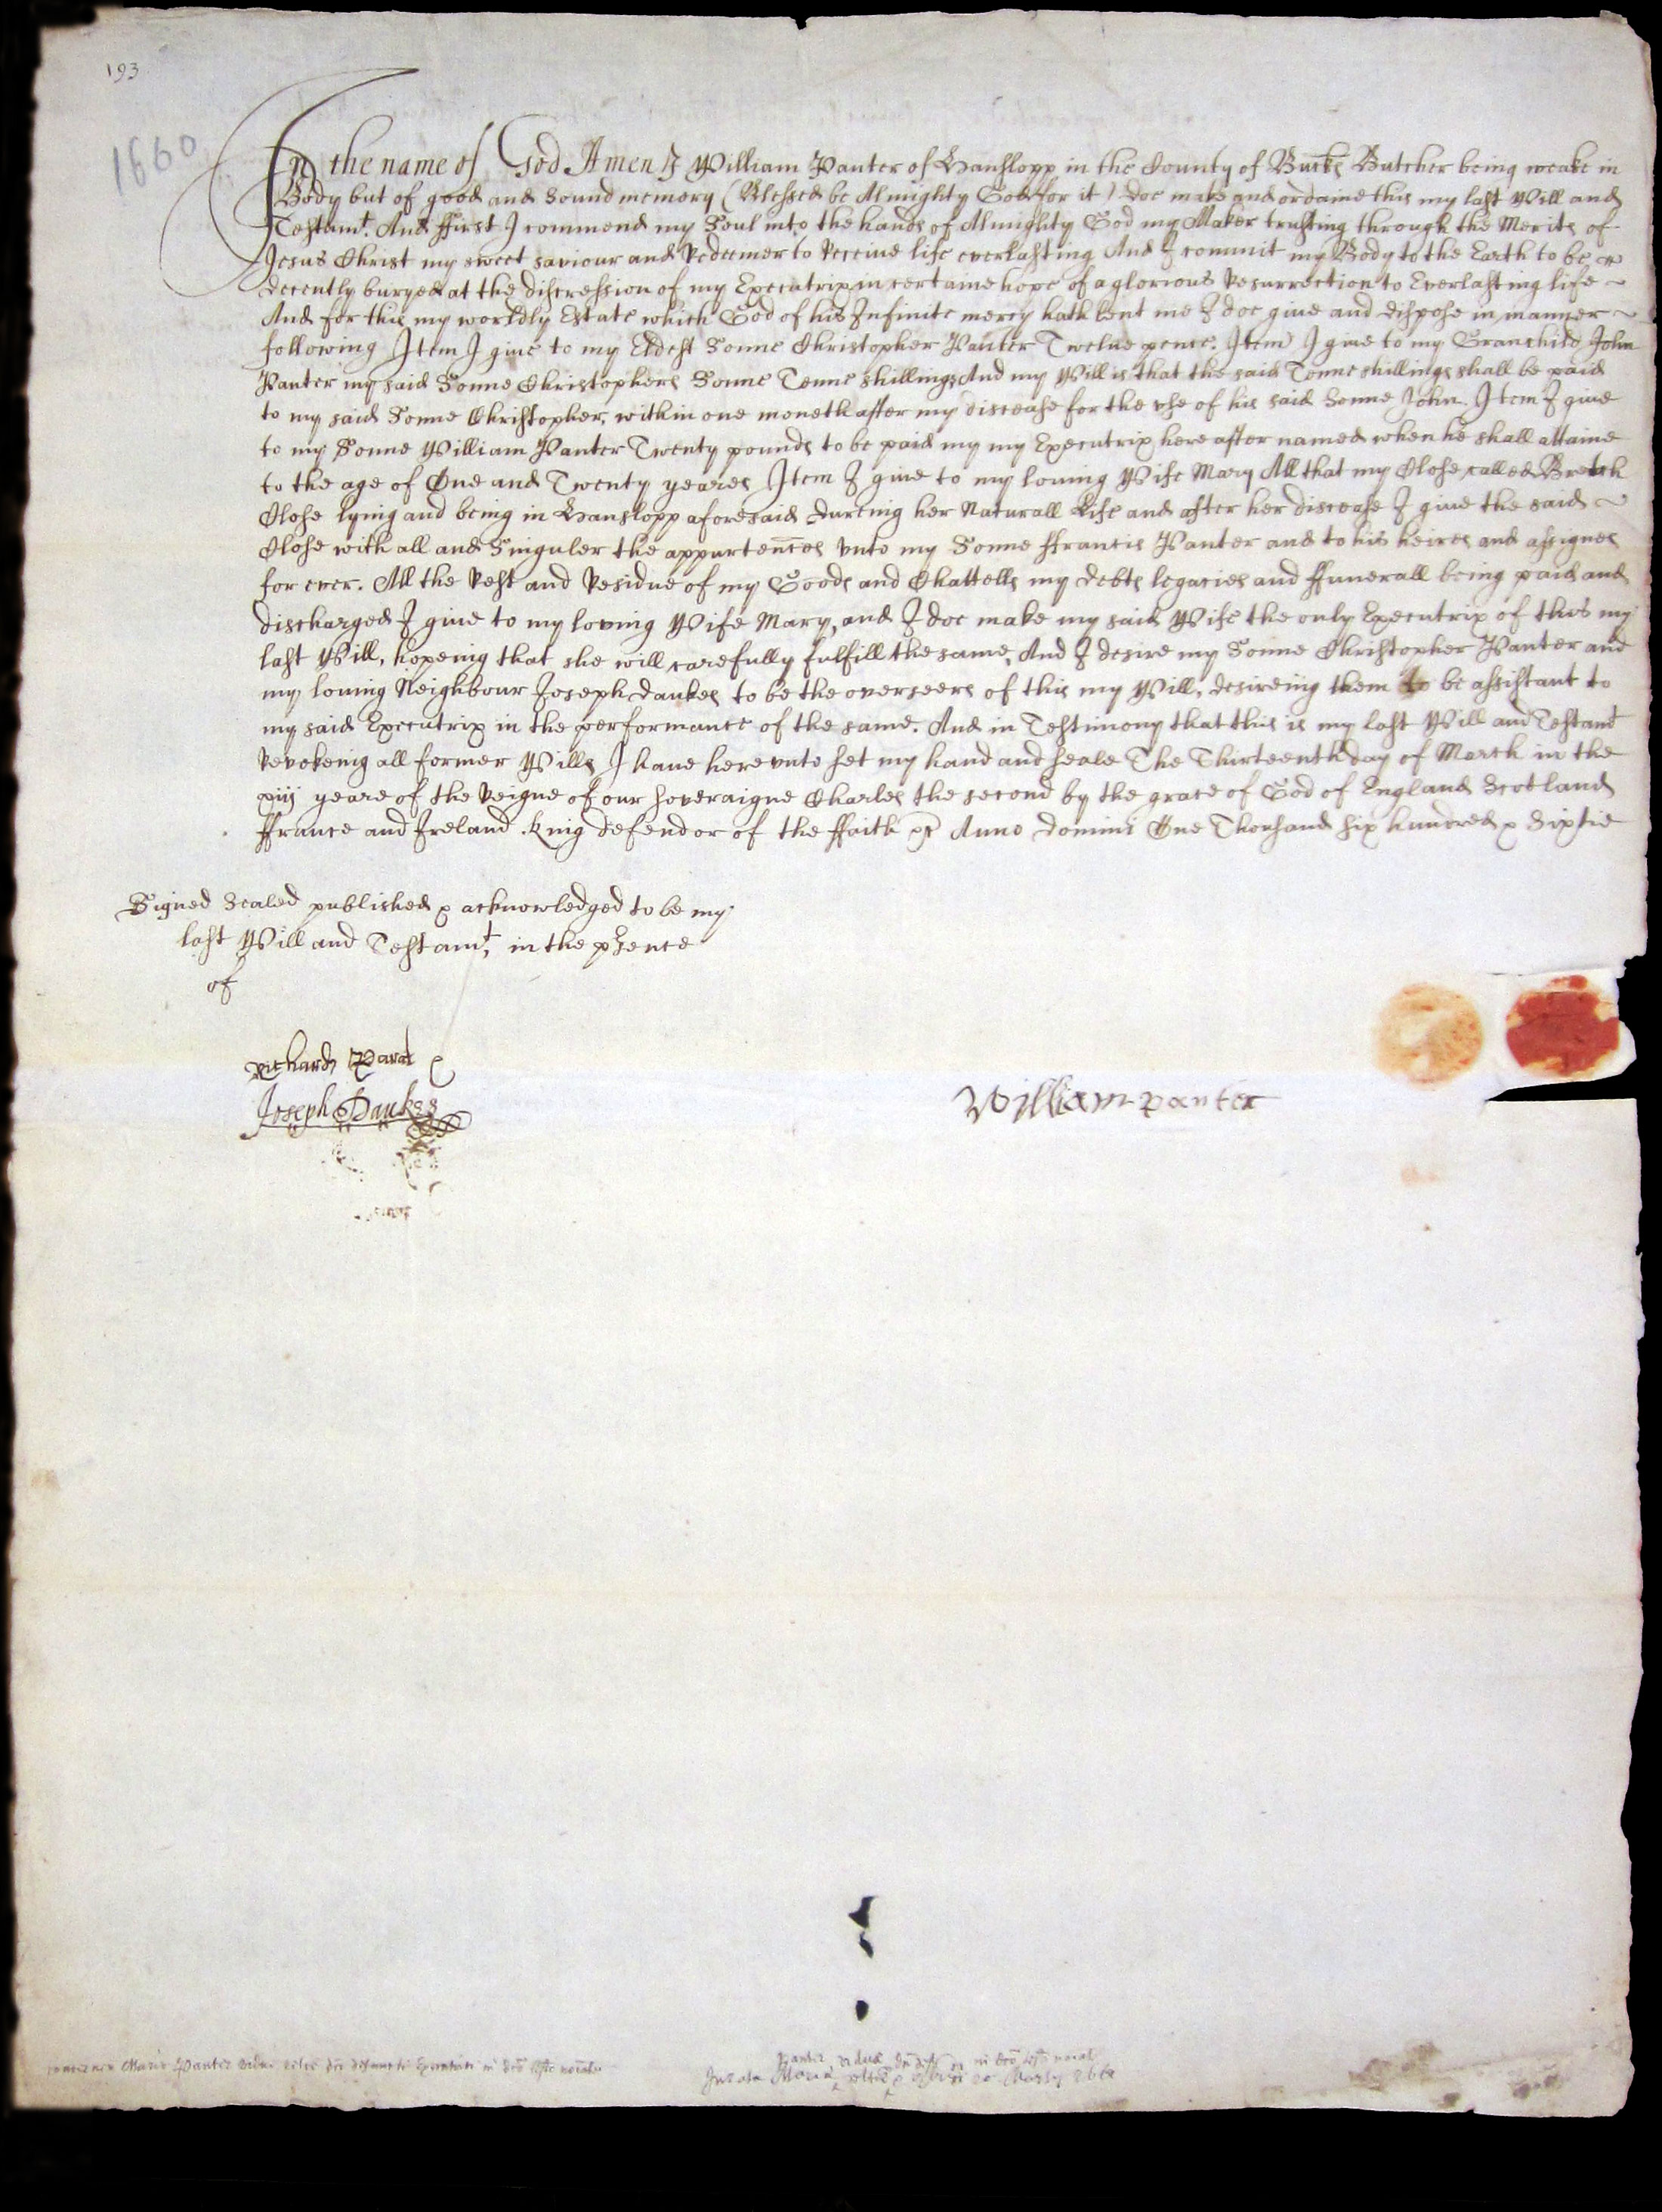 193
1660
In the name of God Amen I William Panter of Hanslopp in the County of Bucks Butcher being weake in
Body but of good and Sound memory (Blessed be Almighty God for it) doe make and ordaine this my last Will and
Testamt. And ffirst I commend my Soul into the hands of Almighty God my Maker trusting through the Merits of
Jesus Christ my sweet saviour and Redeemer to receive life everlasting And I commit my Body to the Earth to be
decently buryed at the discression of my Executrix in certaine hope of a glorious resurrection to Everlasting life
And for this my worldly Estate which God of his Infinite mercy hath lent me I doe give and dispose in manner
following Item I give to my Eldest Sonne Christopher Panter Twelve pence. Item I give to my Granchild John
Panter my said Sonne Christophers Sonne Tenne shillings And my Will is that the said Tenne shillings shall be paid
to my said Sonne Christopher, within one moneth after my disease for the use of his said Sonne John. Item I give
to my Sonne William Panter Twenty pounds to be paid my my Executrix here after named when he shall attaine
to the age of One and Twenty yeares Item I give to my loving Wife Mary All that my Close called Bretch
Close lying and being in Hanslopp aforesaid dureing her Naturall Life and after her disease I give the said
Close with all and Singuler the appurtences unto my Sonne ffrancis Panter and to his heires and assignes
for ever. All the rest and residue of my Goods and Chattells my debts legacies and ffunerall being paid and
discharged I give to my loving Wife Mary, and I doe make my said Wife the only Executrix of this my
last Will, hopeing that she will carefully fulfill the same, And I desire my Sonne Christopher Panter and
my loving Neighbour Joseph Dankes to be the overseers of this my Will, desireing them to be assistant to
my said Executrix in the performance of the same. And in Testimony that this is my last Will and Testamt
revokeing all former Wills I have here unto set my hand and seale The Thirteenth day of March in the
xiij yeare of the reigne of our soveraigne Charles the second by the grace of God of England Scotland
ffrance and Ireland King defendor of the ffaith &c Anno Domini One Thousand six hundred & Sixtie
Signed Sealed published & acknowledged to be my
last Will and Testamt, in the psence
of
Richard
Joseph Dankes
William panter
Marie Panter
Jurata Maria